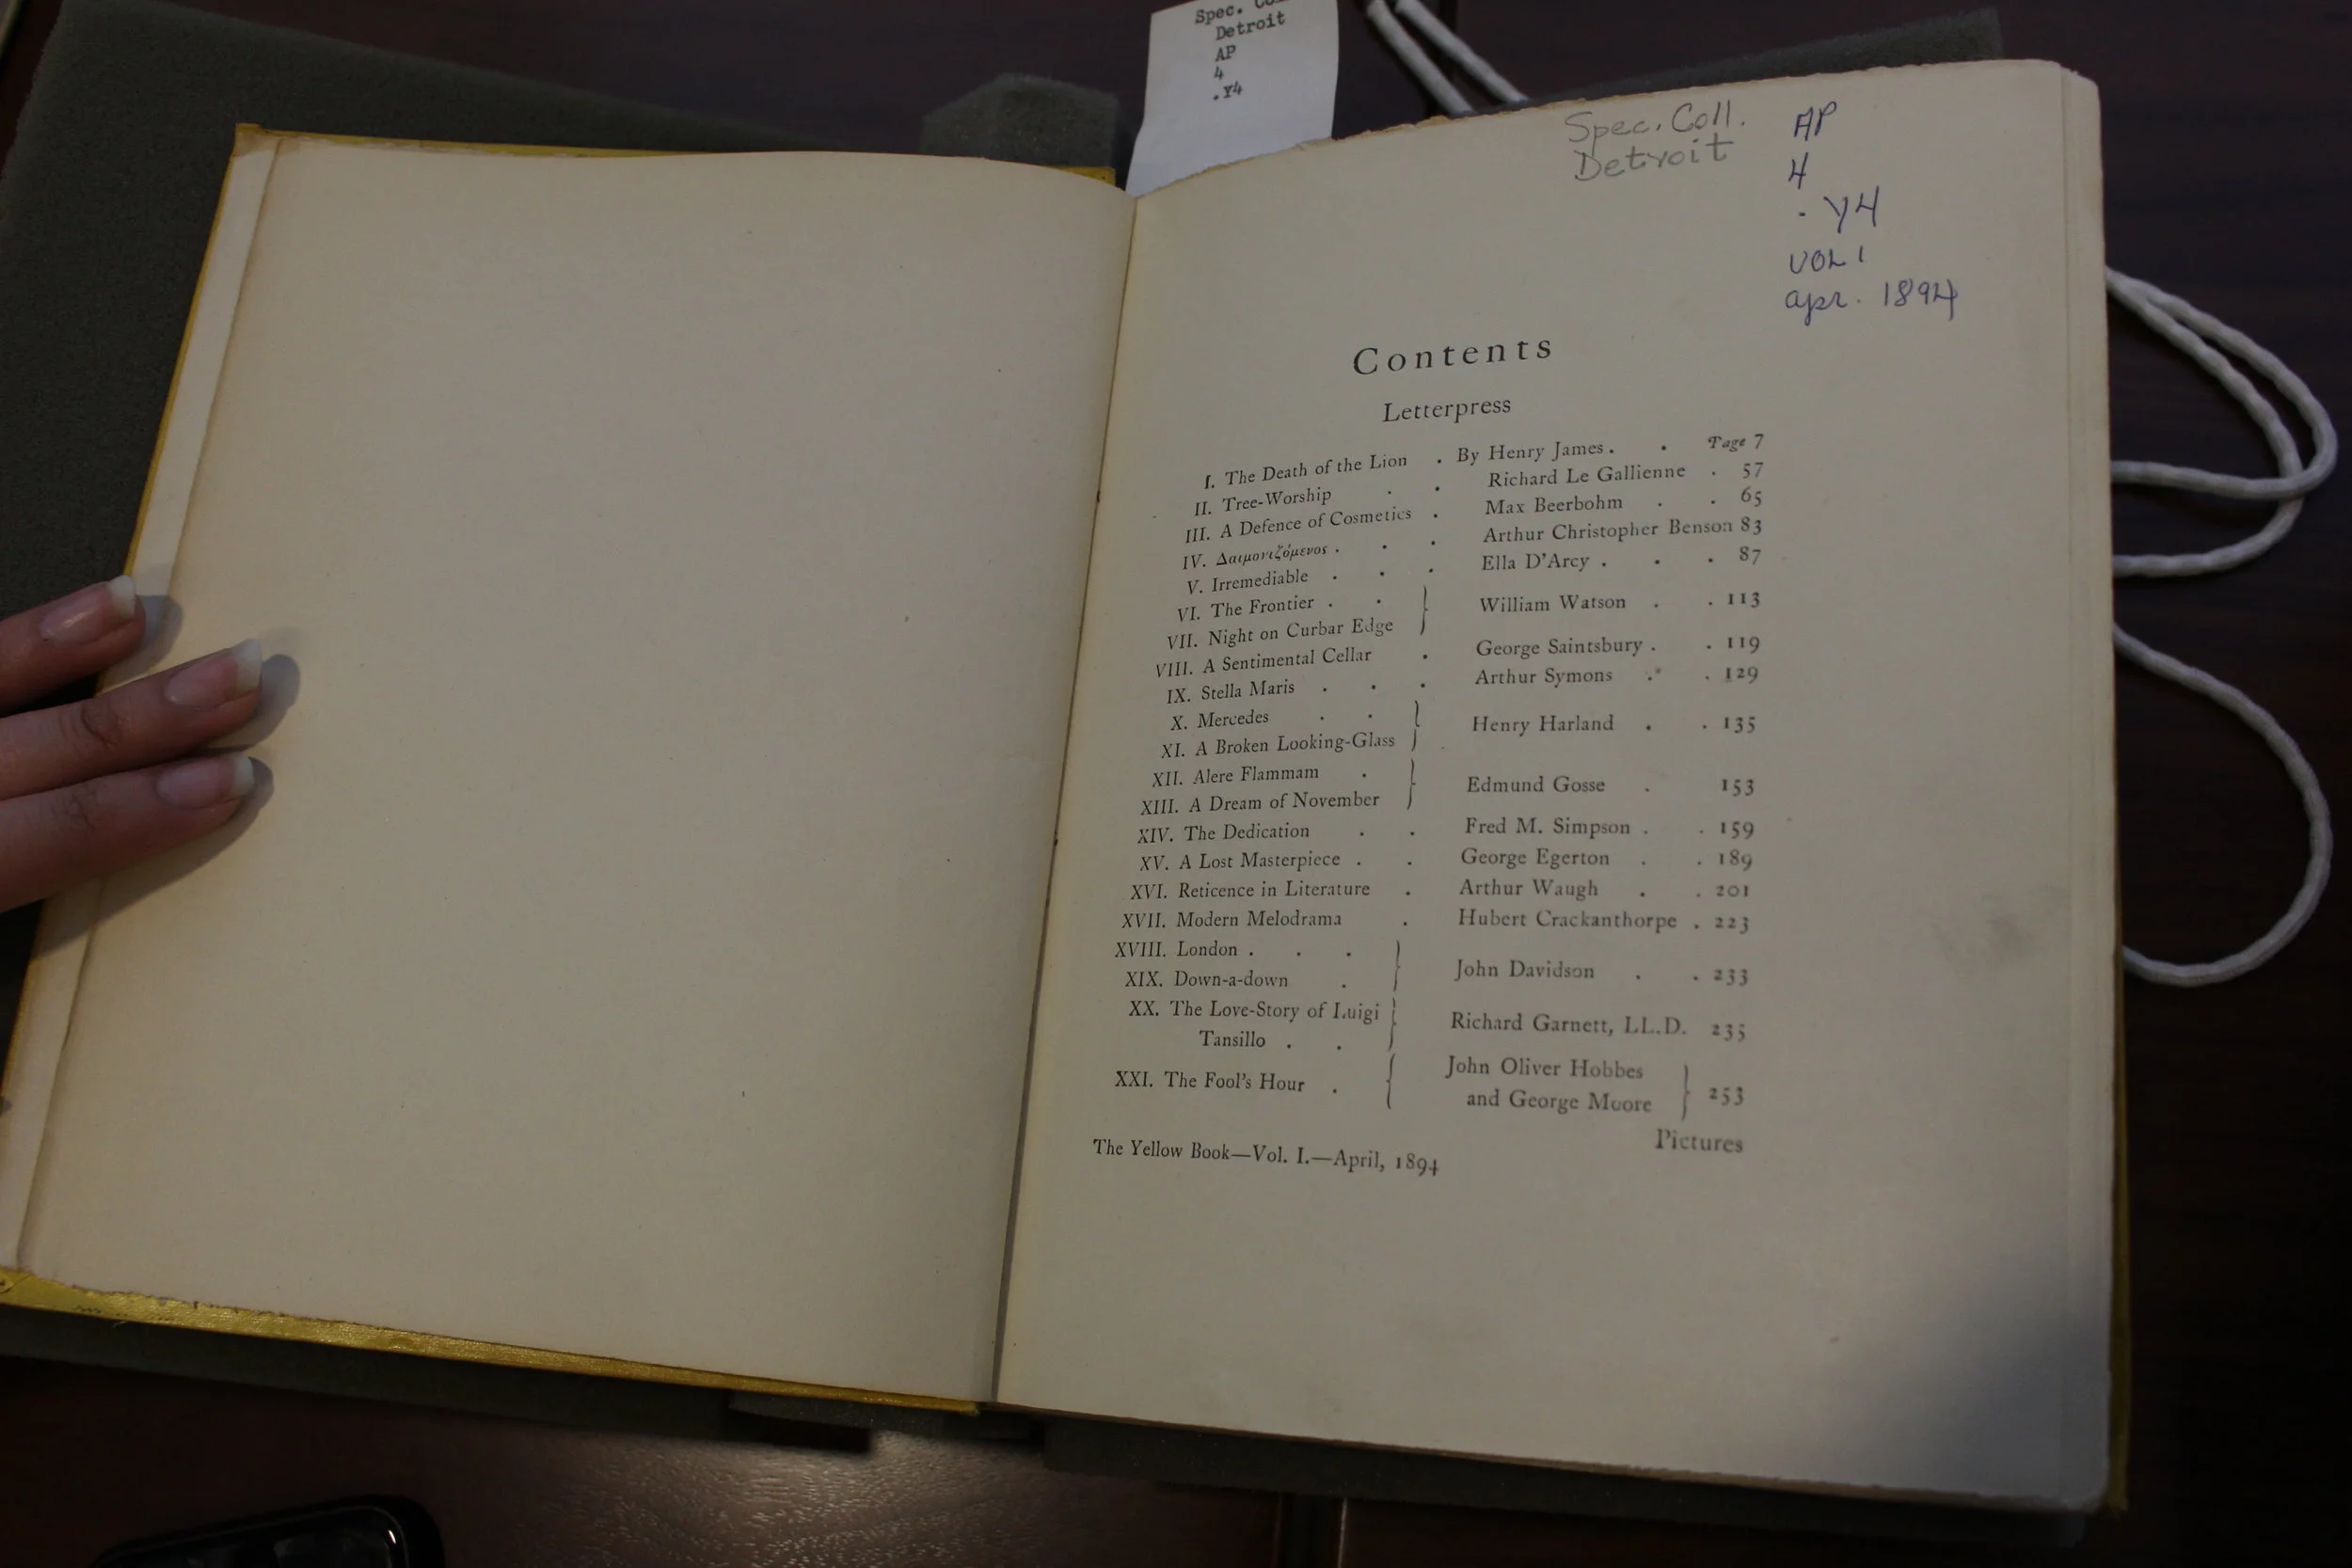 Spec.
Detroit
AP
4
.Y4
Spec. Coll.
Detroit
AP
4
. Y4
VOL 1
apr. 1894
Contents
Letterpress
I. The Death of the Lion . By Henry James . . Page 7
II. Tree-Worship . . Richard Le Gallienne . 57
III. A Defence of Cosmetics . Max Beerbohm . . 65
IV. Δαιμονιζόμενος . . . Arthur Christopher Benson 83
V. Irremediable . . . Ella D'Arcy . . . 87
VI. The Frontier . . } William Watson . . 113
VII. Night on Curbar Edge
VIII. A Sentimental Cellar . George Saintsbury . . 119
IX. Stella Maris . . . Arthur Symons . . 129
X. Mercedes . . } Henry Harland . . 135
XI. A Broken Looking-Glass
XII. Alere Flammam . } Edmund Gosse . 153
XIII. A Dream of November
XIV. The Dedication . . Fred M. Simpson . . 159
XV. A Lost Masterpiece . . George Egerton . . 189
XVI. Reticence in Literature . Arthur Waugh . . 201
XVII. Modern Melodrama . Hubert Crackanthorpe . 223
XVIII. London . . . } John Davidson . . 233
XIX. Down-a-down .
XX. The Love-Story of Luigi } Richard Garnett, LL.D. 235
Tansillo . .
XXI. The Fool's Hour . { John Oliver Hobbes } 253
and George Moore
Pictures
The Yellow Book—Vol. I.—April, 1894